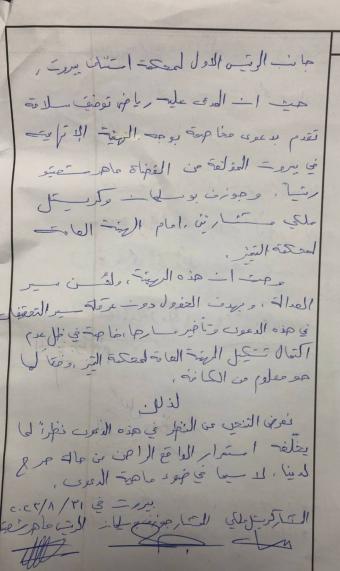 جانب الرئيس الاول لمحكمة استئناف بيروت،
حيث ان المدعى عليه رياض توفيق سلامة
تقدم بدعوى مخاصمة بوجه الهيئة الاتهامية
في بيروت المؤلفة من القضاة ماهر شعيتو
رئيساً، وجوزف بو سليمان وكريستيل
ملكي مستشارين، امام الهيئة العامة
لمحكمة التمييز.
وحيث ان هذه الهيئة، ولحسن سير
العدالة، وبهدف الحؤول دون عرقلة سير التحقيقات
في هذه الدعوى وتأخير مسارها، خاصة في ظل عدم
اكتمال تشكيل الهيئة العامة لمحكمة التمييز، وفقاً لما
هو معلوم من الكافة،
لذلك
نعرض التنحي عن النظر في هذه الدعوى نظراً لما
يخلفه استمرار الواقع الراهن من حالة حرج
لدينا، لا سيما في ضوء ماهية الدعوى.
بيروت في ٣١/٨/٢٠٢٣
المستشار كريستيل ملكي المستشار جوزف بو سليمان الرئيس ماهر شعيتو